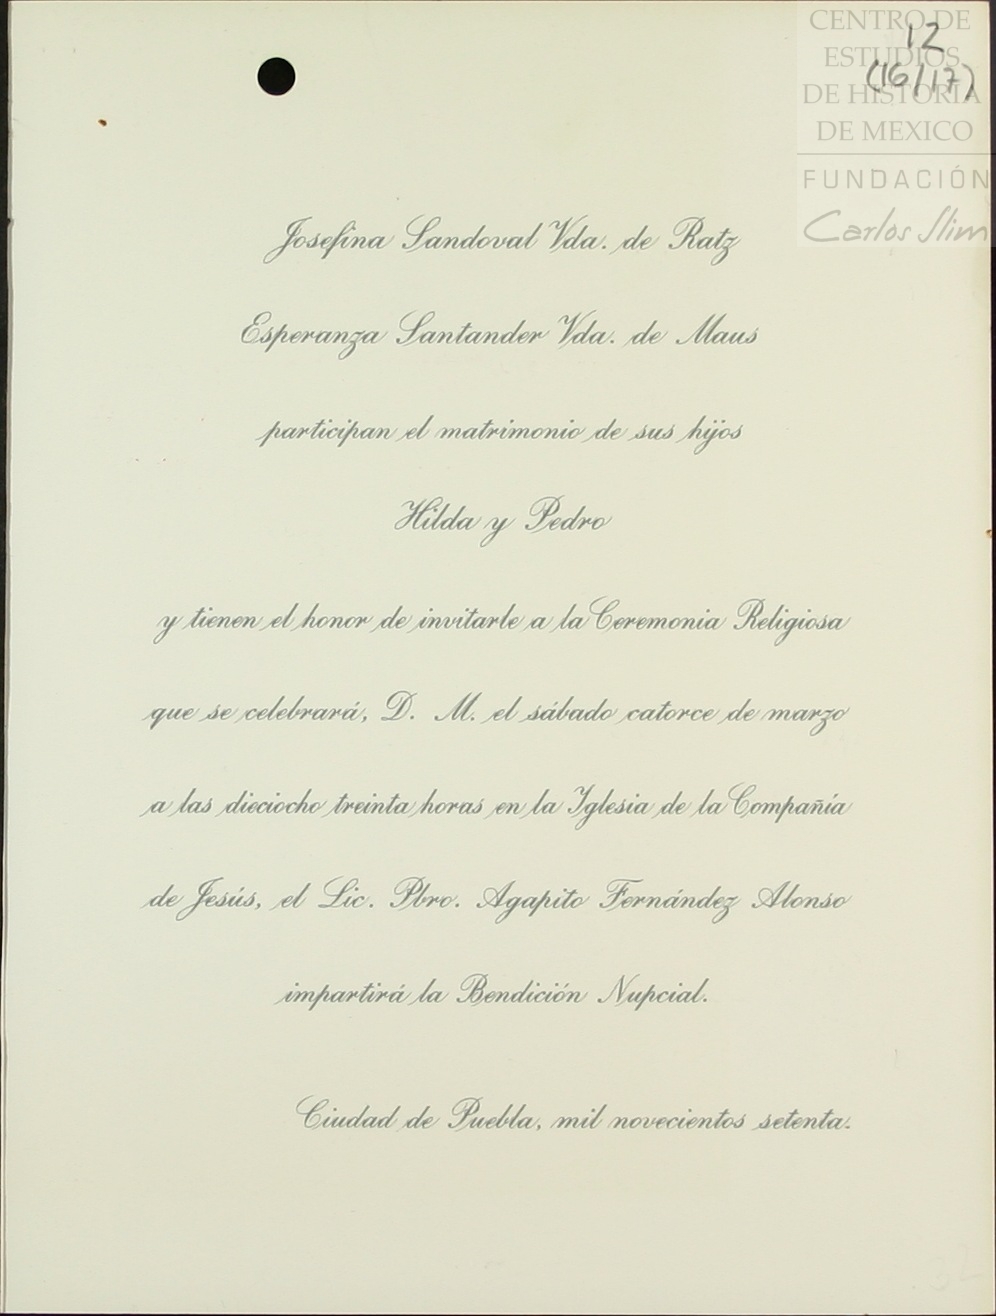 CENTRO DE
ESTUDIOS
DE HISTORIA
DE MEXICO
FUNDACIÓN
Carlos Slim
12
(16/17)
Josefina Sandoval Vda. de Ratz
Esperanza Santander Vda. de Maus
participan el matrimonio de sus hijos
Hilda y Pedro
y tienen el honor de invitarle a la Ceremonia Religiosa
que se celebrará, D. M. el sábado catorce de marzo
a las dieciocho treinta horas en la Iglesia de la Compañía
de Jesús, el Lic. Pbro. Agapito Fernández Alonso
impartirá la Bendición Nupcial.
Ciudad de Puebla, mil novecientos setenta.